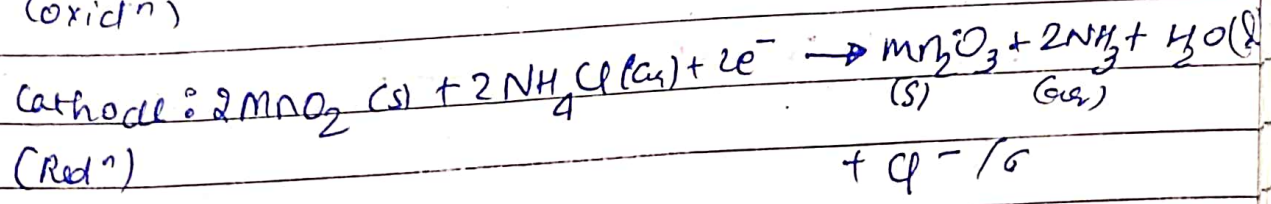 (oxidⁿ)
Cathode: 2MnO₂ (s) + 2NH₄Cl(aq) + 2e⁻ → Mn₂O₃ + 2NH₃ + H₂O(l
(s) (aq)
(Redⁿ) + Cl⁻